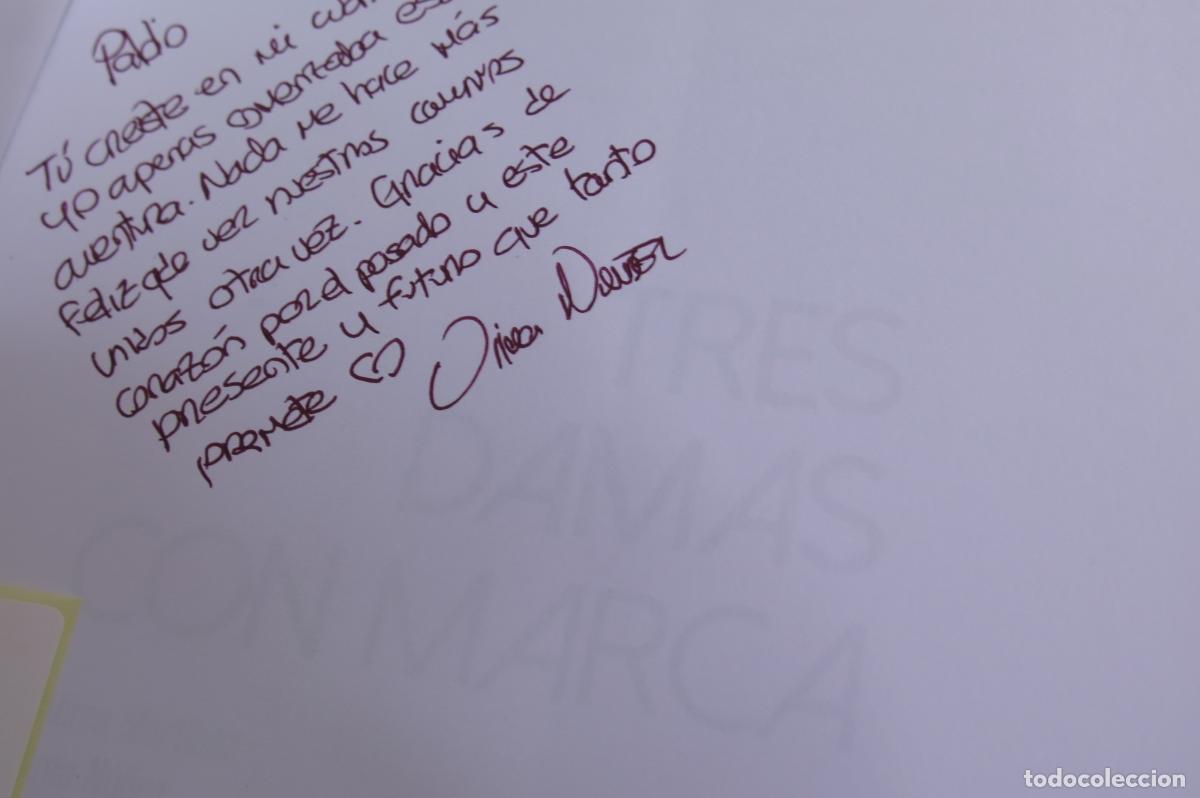 Pablo
Tú creíste en mí cuan
yo apenas comenzaba es
aventura. Nada me hace más
feliz que ver nuestros caminos
unidos otra vez. Gracias de
corazón por el pasado y este
presente y futuro que tanto
promete ♡
TRES
DAMAS
CON MARCA
todocoleccion